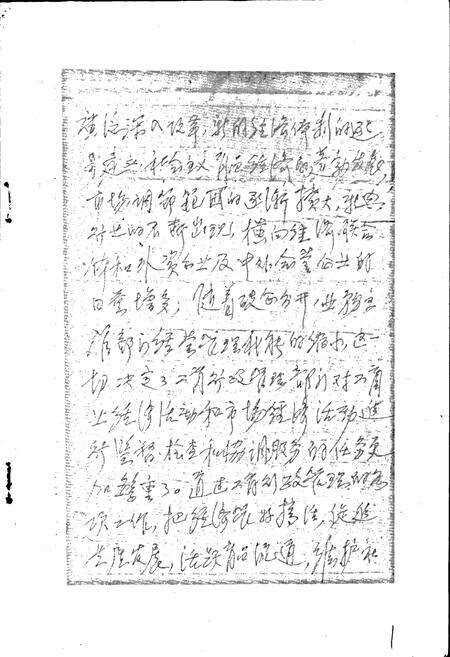 深入改革，新的经济体制的逐
步建立，社会主义商品经济的蓬勃发展，
市场调节范围的逐渐扩大，新兴
行业的不断出现，横向经济联合
体和外资企业及中外合营企业的
日益增多；随着政企分开，业务主
管部门经营管理职能的缩小，这一
切决定了工商行政管理部门对工商
业经济活动和市场经济活动进
行监督、检查和协调服务的任务更
加繁重了。通过工商行政管理的各
项工作，把经济跟好搞活，促进
生产发展，活跃商品流通，维护社